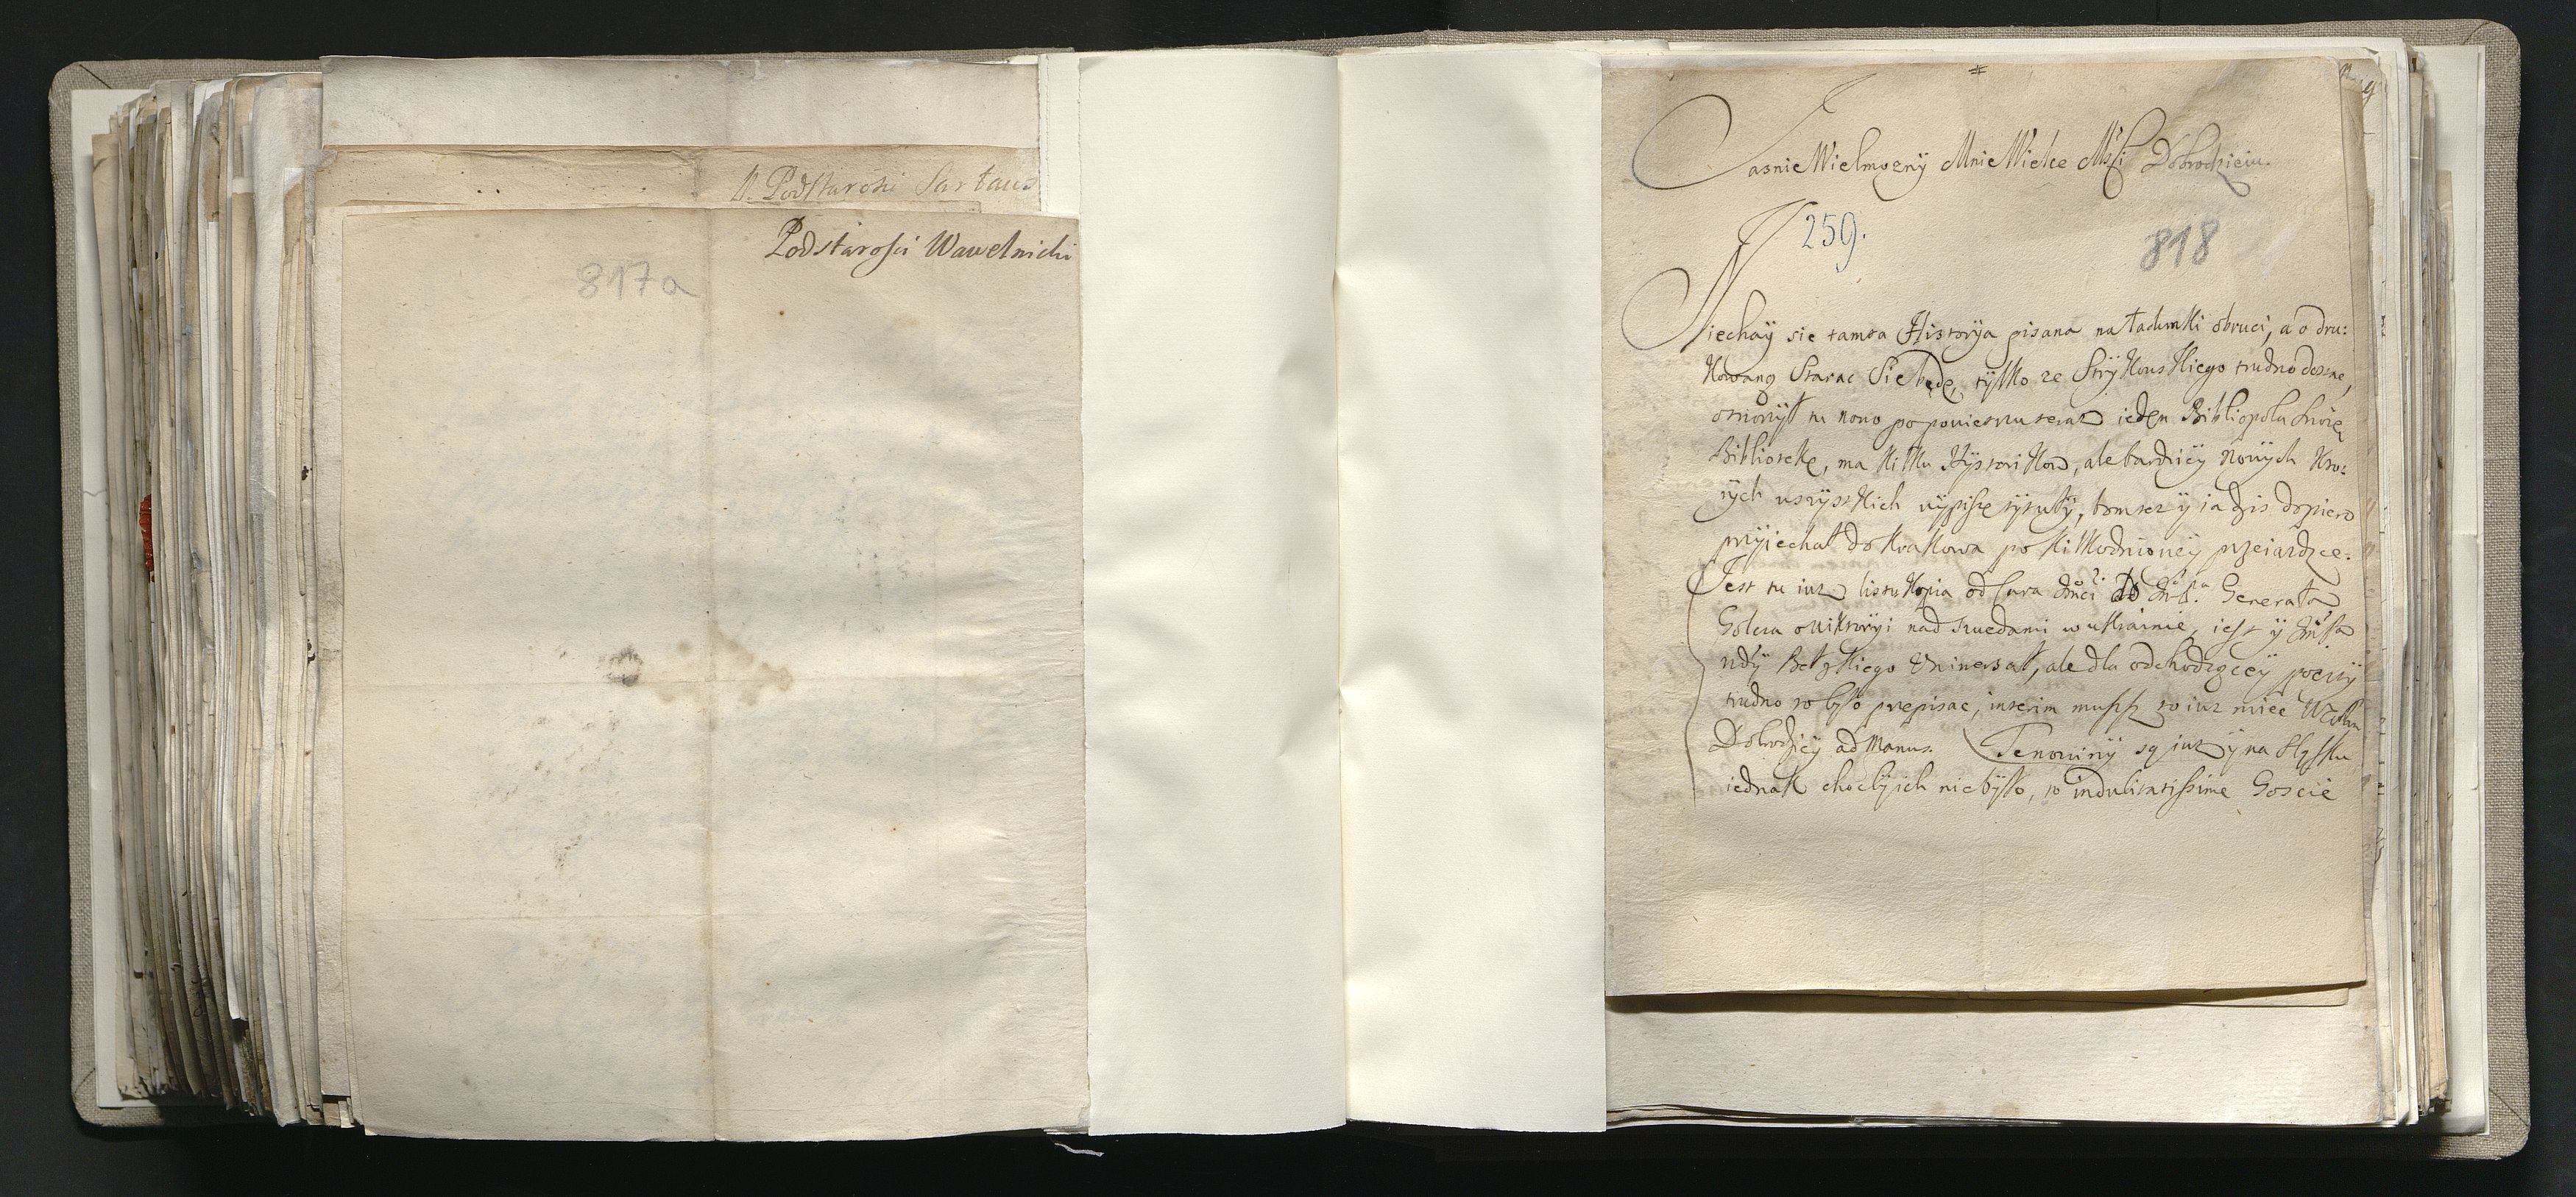 P. Podstarosci
Podstarosci Wawelnicki
817a
Jasnie Wielmozny Mnie Wielce Msci Dobrodzieiu.
259.
818
Niechay sie tamta Historya pisana na ładunki obruci, a o dru:
kowaną Starac Sie będę, tylko ze Strykouskiego trudno dostac,
otworzył tu nowo po powietrzu teraz ieden Bibliopola swoię
Bibliotekę, ma kilku Hystorikow, ale bardziey nowych kto:
rych wszystkich wypiszę tytuły, tom sez y ia dzis dopiero
przyiechał do Krakowa po kilkodnioney przeiardzce.
Jest tu iuz listu kopia od Cara Generała
Goltza o wiktoryi nad szwedami w ukrainie, iest y
wdy Bełzkiego Uniwersał, ale dla odchodzącey poczty
trudno to było przepisac, interim muszą to iuz miec
Dobrodziey ad manus. Te nowiny są iuz y na Sląsku
iednak chocby ich nie było, to indubitatissime Goscie